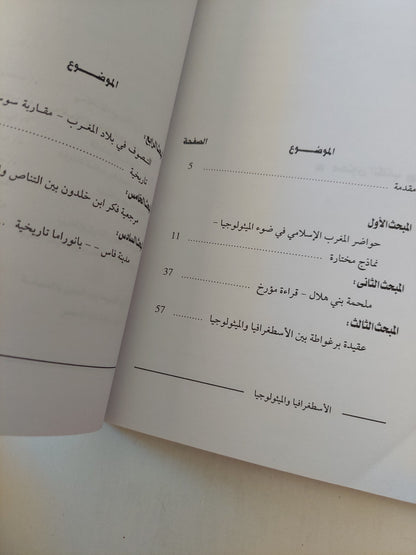 الموضـــوع
الصفحة
مقدمة ........................ 5
المبحث الأول
حواضر المغرب الإسلامي في ضوء الميثولوجيا –
نماذج مختارة ........................ 11
المبحث الثانى:
ملحمة بني هلال – قراءة مؤرخ ............ 37
المبحث الثالث:
عقيدة برغواطة بين الأسطغرافيا والميثولوجيا ........ 57
الأسطغرافيا والميثولوجيا
الموضـــوع
الرابع:
التصوف في بلاد المغرب – مقاربة
تاريخية ........................
الخامس:
مرجعية فكر ابن خلدون بين التناص
السادس:
مدينة فاس – – بانوراما تاريخية ...